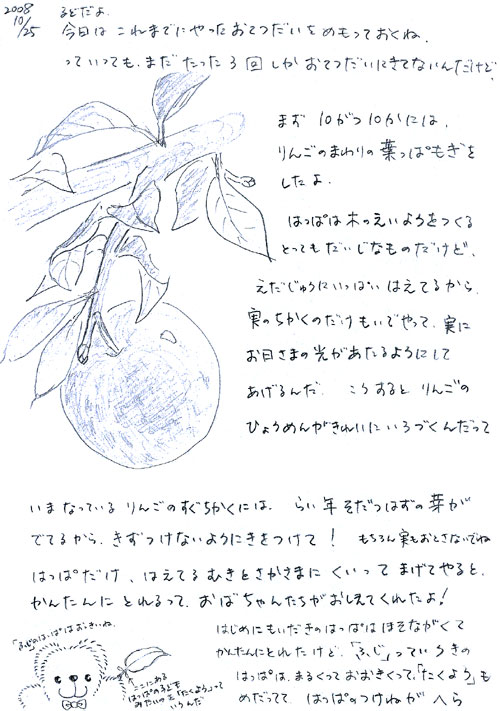 2008
10/25
るどだよ.
今日は これまでに やった おてつだいを めもっておくね.
っていっても、まだ たった 3回しか おてつだいにきてないんだけど.
まず 10がつ10かには、
りんごのまわりの葉っぱもぎを
したよ.
はっぱは木のえいようをつくる
とっても だいじなものだけど、
えだじゅうにいっぱい はえてるから、
実のちかくのだけもいでやって、実に
お日さまの光があたるようにして
あげるんだ. こうすると りんごの
ひょうめんがきれいに いろづくんだって
いま なっている りんごのすぐちかくには、らい年そだつはずの芽が
でてるから、きずつけないようにきをつけて! もちろん実もおとさないでね
はっぱだけ、はえてる むきと さかさまに くいって まげてやると、
かんたんに とれるって、おばちゃんたちが おしえてくれたよ!
はじめに もいだ きの はっぱは ほそながくて
かんたんにとれたけど、「ふじ」っていう きの
はっぱは、まるくって おおきくって、「たくよう」も
めだってて はっぱの つけねが へら
「ふじの はっぱは おっきいね.
ここにある
はっぱの子ども
みたいのを「たくよう」って
いうんだ